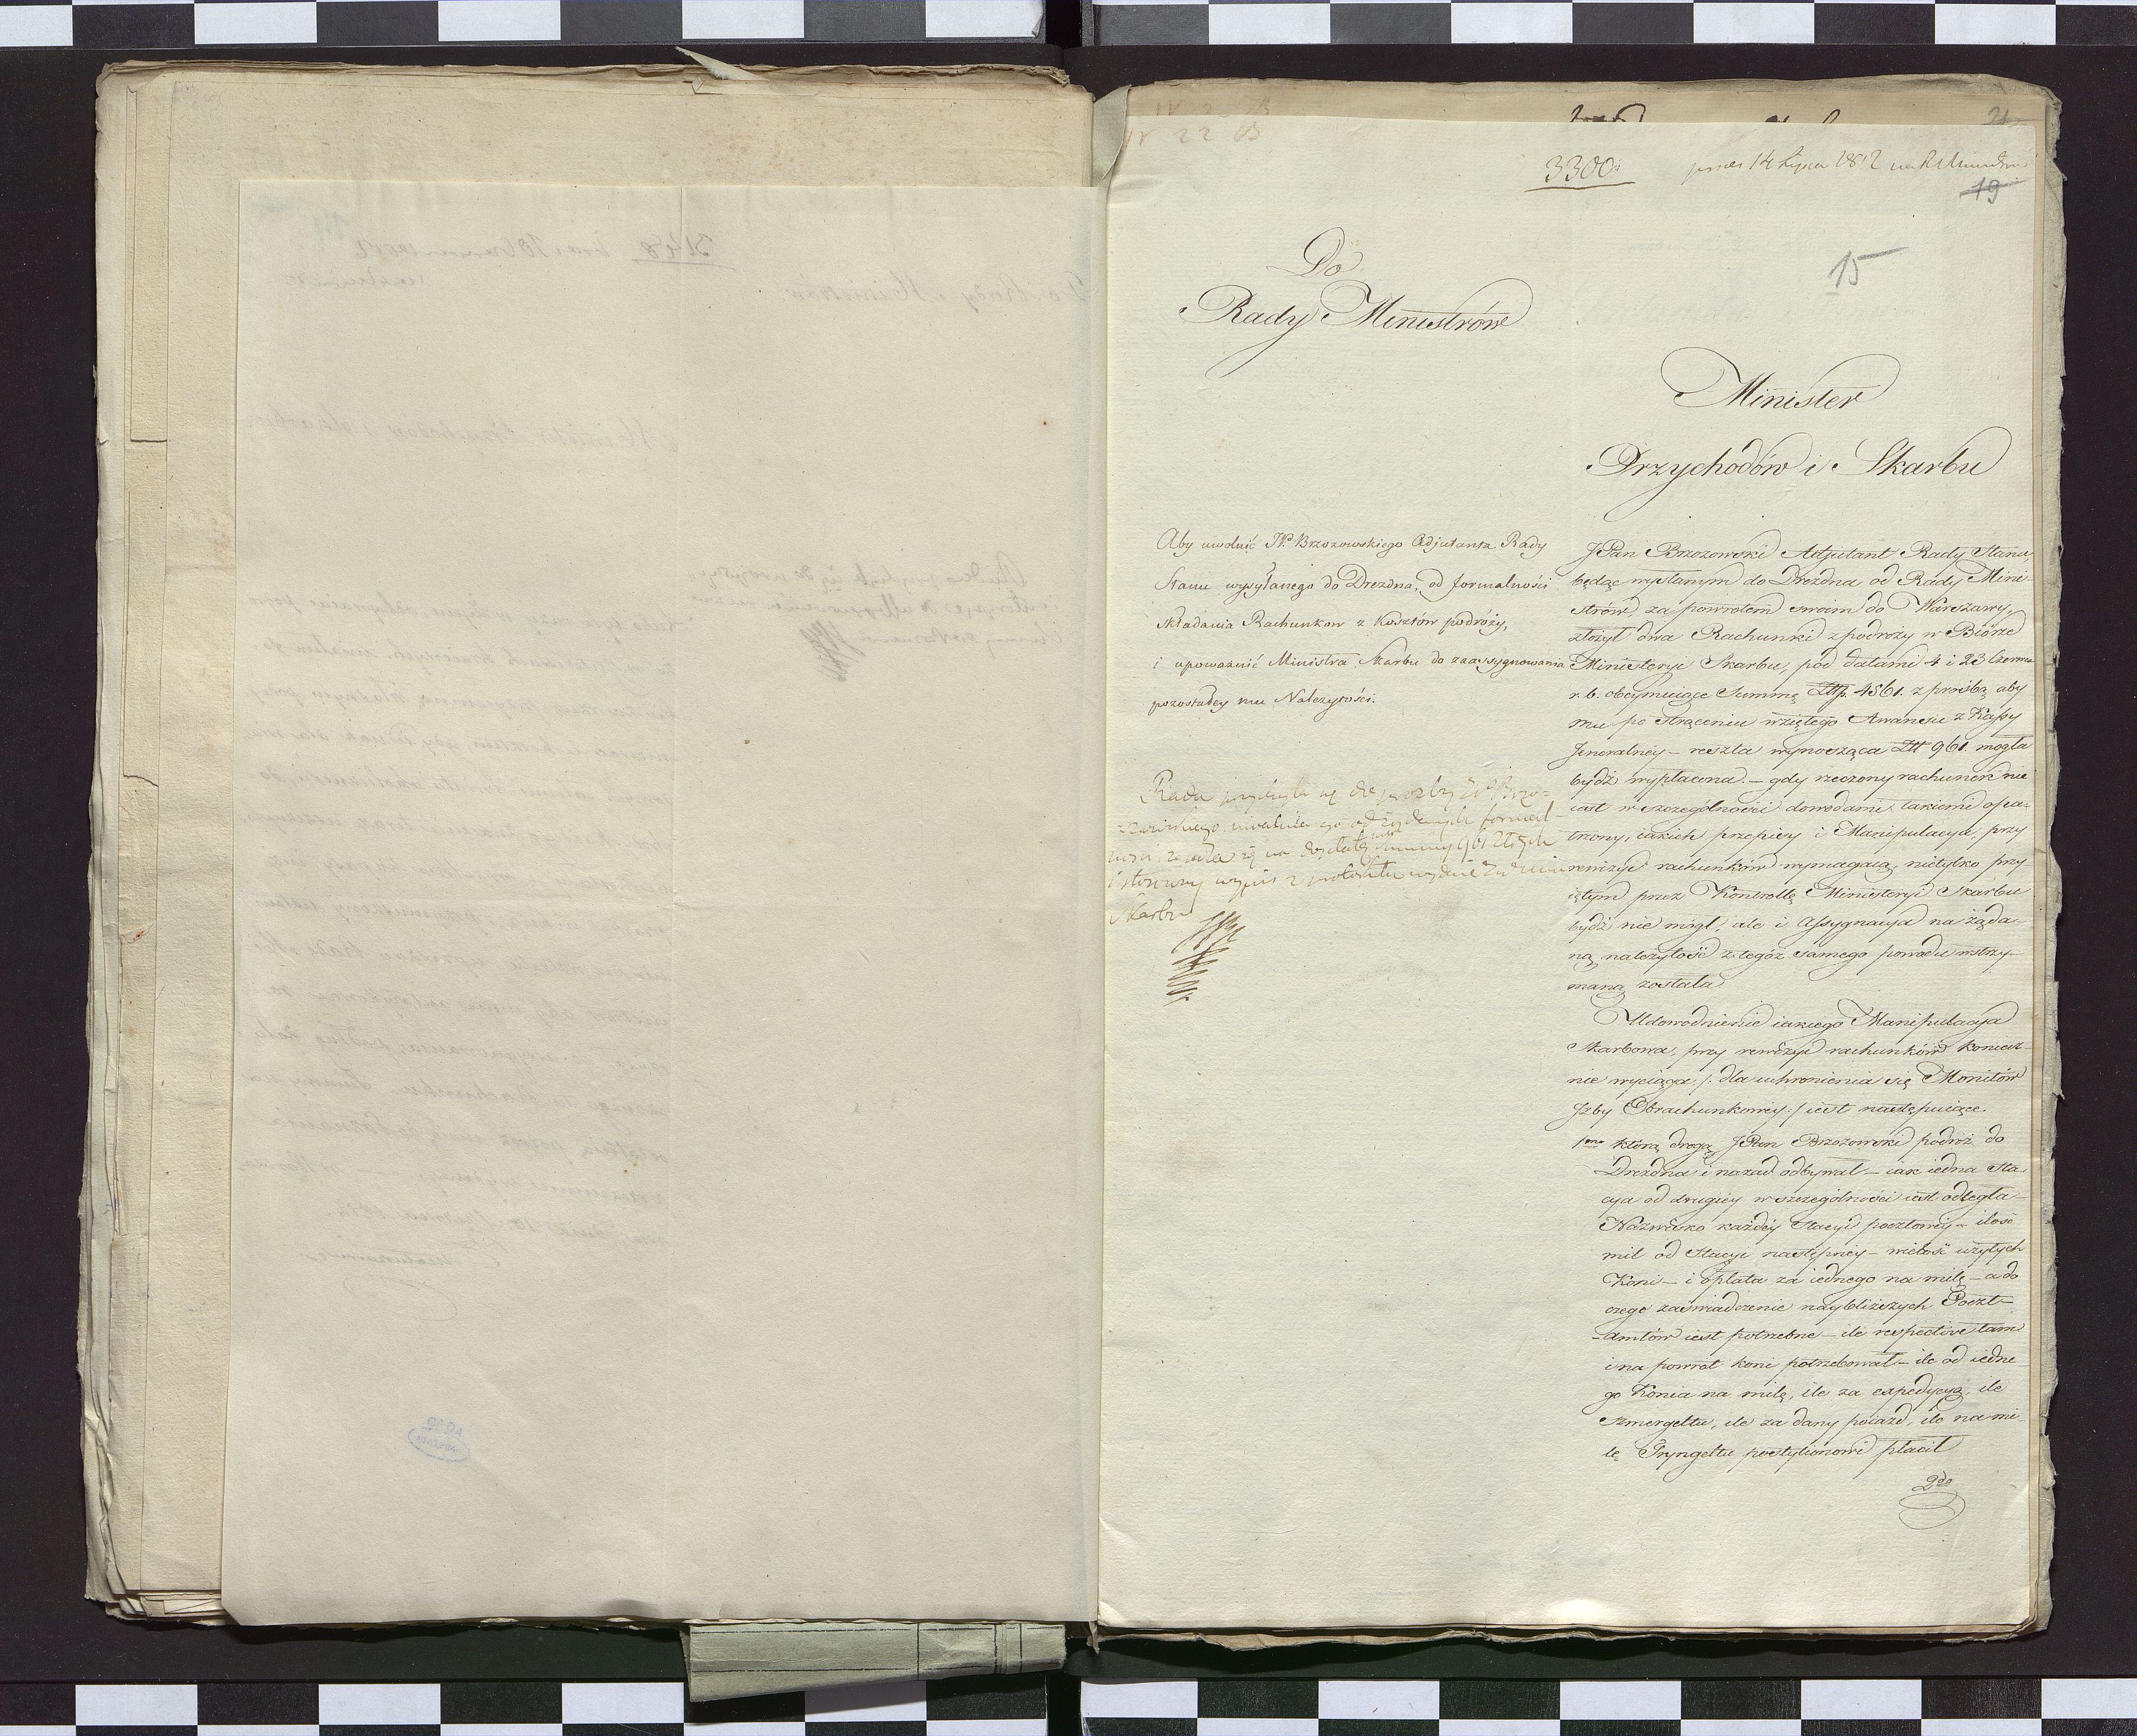 N 22 B
3300.
14 Lipca 1812
21
19
15
Do
Rady Ministrów
Minister
Przychodów i Skarbu
Aby uwolnić JP. Brzozowskiego Adjutanta Rady
Stanu wysyłanego do Drezdna, od formalności
składania Rachunkow z Kosztów podróży,
i upoważnić Ministra Skarbu do zaassygnowania
pozostałey mu Należytości.
Rada przychyla się do prozby JP. Brzo-
zowskiego, uwalnia go od żądanych formal-
ności, zezwala się na dopłatę summy 961 Złtych
i stosowny wypis z protokółu
Skarbu
JPan Brzozowski Adjutant Rady Stanu,
będąc wysłanym do Drezdna od Rady Mini-
strów, za powrotem swoim do Warszawy,
złożył dwa Rachunki z podroży w Biórze
Ministeryi Skarbu, pod datami 4 i 23 Czerwca
r. b. obeymuiące Summę Złtp. 4561. z prośbą aby
mu po strąceniu wziętego Awansu z Kassy
Jeneralney – reszta wynosząca Złt 961 mogła
bydź wypłacona. – gdy rzeczony rachunek nie
iest w szczególności dowodami takiemi opa-
trzony, iakich przepisy i Manipulacya, przy
rewizyi rachunków wymagaią, nietylko przy-
iętym przez Kontrollę Ministeryi Skarbu
bydź nie mógł, ale i Assygnacya na żąda-
ną należytość z tegóż samego powodu wstrzy-
maną została
Udowodnienie iakiego Manipulacya
Skarbowa, przy rewizyi rachunków koniecz-
nie wyciąga /: dla uchronienia się Monitów
Jzby Obrachunkowey :/ iest następuiące.
1mo którą drogą JPan Brzozowski podróż do
Drezdna i nazad odbywał – iak iedna Sta-
cya od drugiey w szczególności iest odległa –
Nazwisko każdéy Stacyi pocztowéy – ilość
mil od Stacyi następnéy – wielość użytych
Koni – i opłata za iednego na milę – a do
czego zaświadczenie naybliższych Poczt-
-amtów iest potrzebne – ile respective tam
i na powrót koni potrzebował – ile od iedne
go Konia na milę, ile za expedycyą, ile
Szmergeltu, ile za dany poiazd, ile na mi
lę Tryngeltu postylionowi płacił
2do